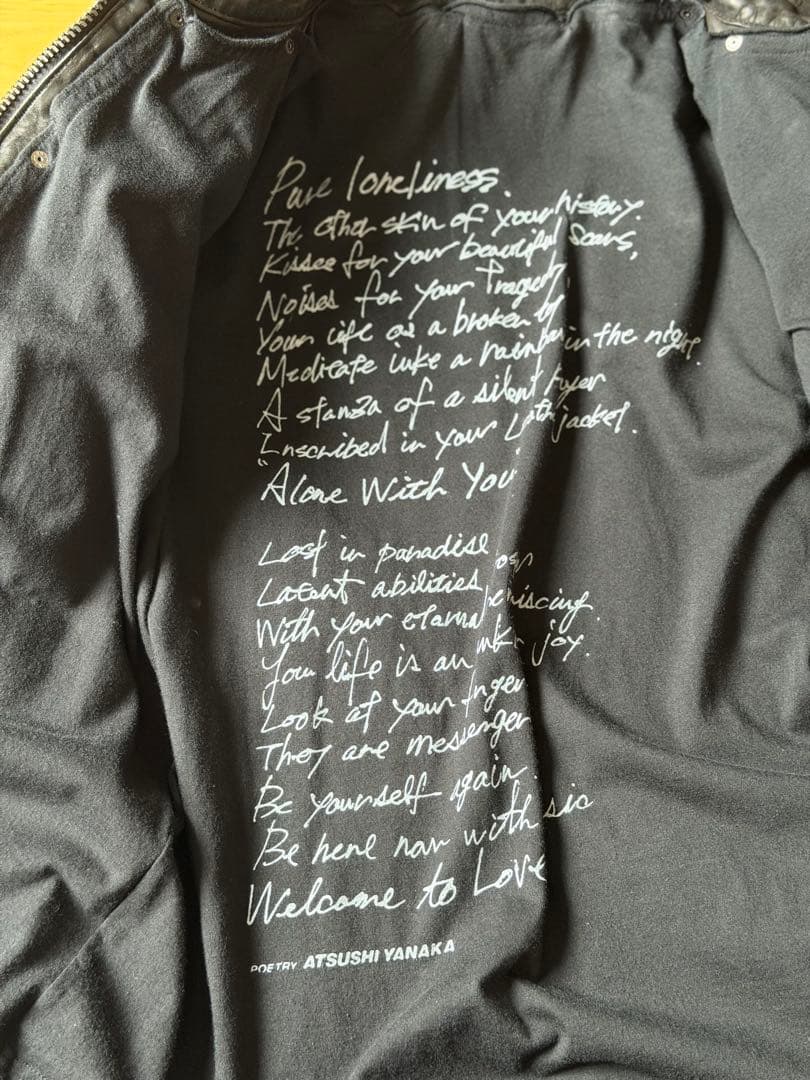 Pure loneliness.
The other skin of your history.
Kisses for your beautiful scars,
Noises for your Tragedy,
Your life as a broken
Medicate like a rainbow in the night.
A stanza of a silent
Inscribed in your jacket.
"Alone With You"
Lost in paradise
Latent abilities
With your eternal
Your life is an joy.
Look at your finger
They are messenger
Be yourself again.
Be here now with
Welcome to Love
POETRY ATSUSHI YANAKA